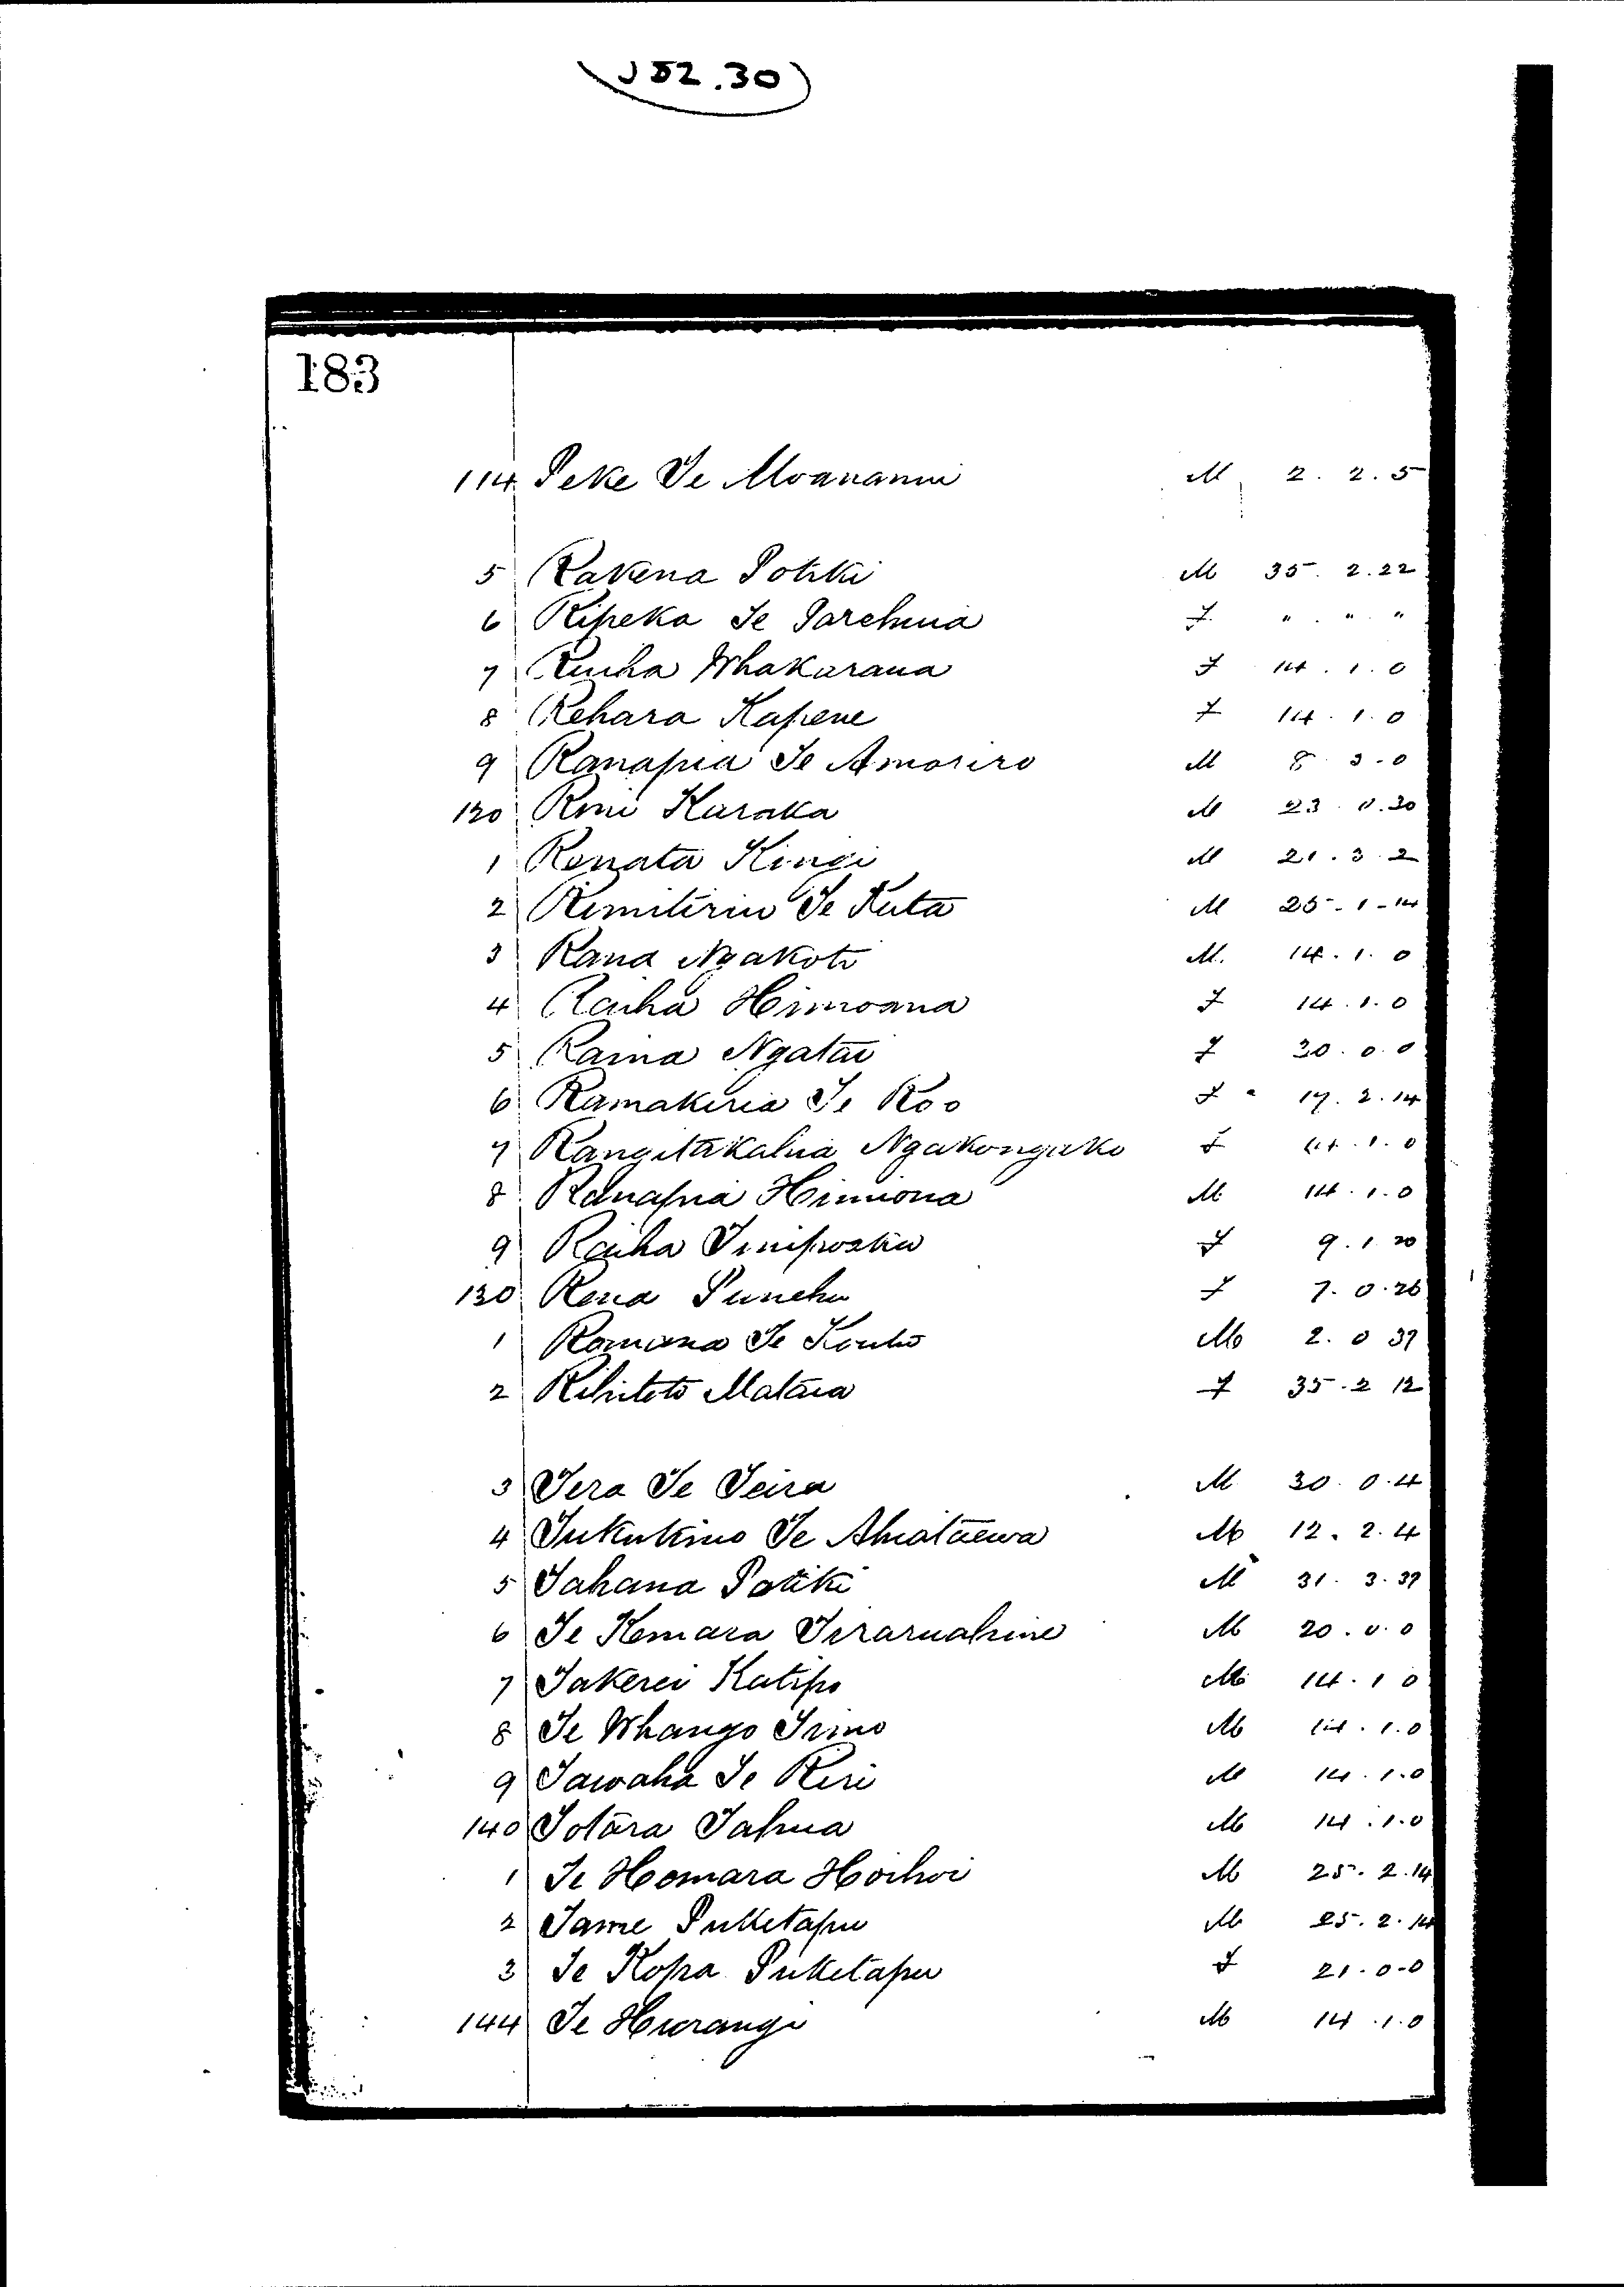 J52.30
183
114 Peke Te Moananui M 2. 2. 5
5 Rakena Potiki M 35. 2. 22
6 Ripeka Te Parehuia F. " . " . "
7 Ruiha Whakarana F 14. 1. 0
8 Rehara Kapene F 14. 1. 0
9 Ranapia Te Amoriro M 8 3. 0
120 Rini Karaka M 23. 0. 30
1 Renata Kingi M 21. 3. 2
2 Rimitiriu Te Kuta M 25. 1. 14
3 Rana Ngakoti M. 14. 1. 0
4 Raiha Himoana F 14. 1. 0
5 Raina Ngatai F 30. 0. 0
6 Ramakiria Te Koo F 17. 2. 14
7 Rangitakahia Ngakongako F 14. 1. 0
8 Ranapia Himiona M 14. 1. 0
9 Raiha F 9. 1. 20
130 Rena Punehu F 7. 0. 26
1 Romana Te M 2. 0 39
2 Rihitoto Mataia F 35. 2 12
3 Tera Te Teira M 30. 0. 4
4 Tukukino Te Ahiataewa M 12. 2. 4
5 Tahana Potiki M 31. 3. 39
6 Te Kemara Tiraruahine M 20. 0. 0
7 Takerei Katipo M 14. 1 0
8 Te Whango Trino M 14. 1. 0
9 Tawaha Te Riri M 14. 1. 0
140 Totara Tahua M 14. 1. 0
1 Te Homara Hoihoi M 25. 2. 14
2 Tame Puketapu M 25. 2. 14
3 Te Kopa Puketapu F 21. 0. 0
144 Te Hurangi M 14. 1. 0